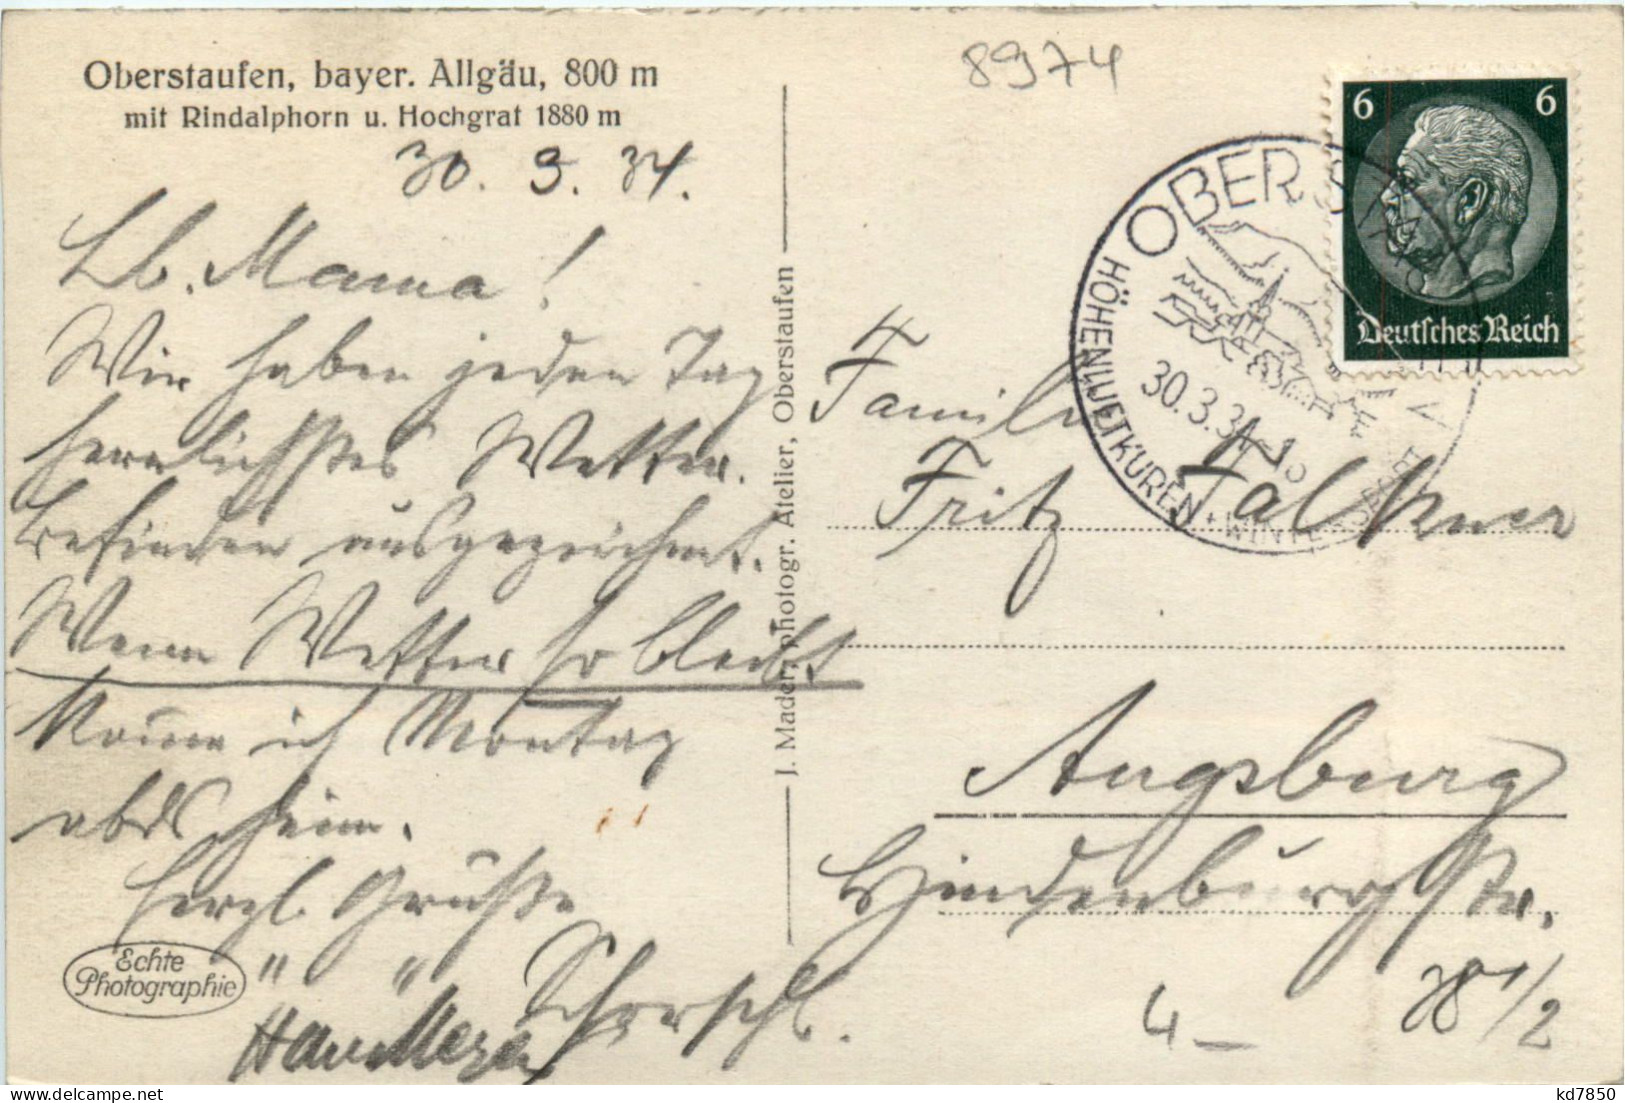 Oberstaufen, bayer. Allgäu, 800 m
mit Rindalphorn u. Hochgrat 1880 m
30. 3. 34.
Lb. Mama!
Wir haben jeden Tag
herrlichstes Wetter.
Befinden ausgezeichnet.
Wenn Wetter so bleibt
komme ich Montag
abds heim.
Herzl. Grüße
" " Schorschl.
Echte
Photographie
J. Mader, photogr. Atelier, Oberstaufen
8974
6 6
Deutsches Reich
OBERSTAUFEN
HÖHENLUFTKUREN + WINTERSPORT
30.3.34
Familie
Fritz Falkner
Augsburg
Hindenburgstr.
38 1/2
4 –
kd7850